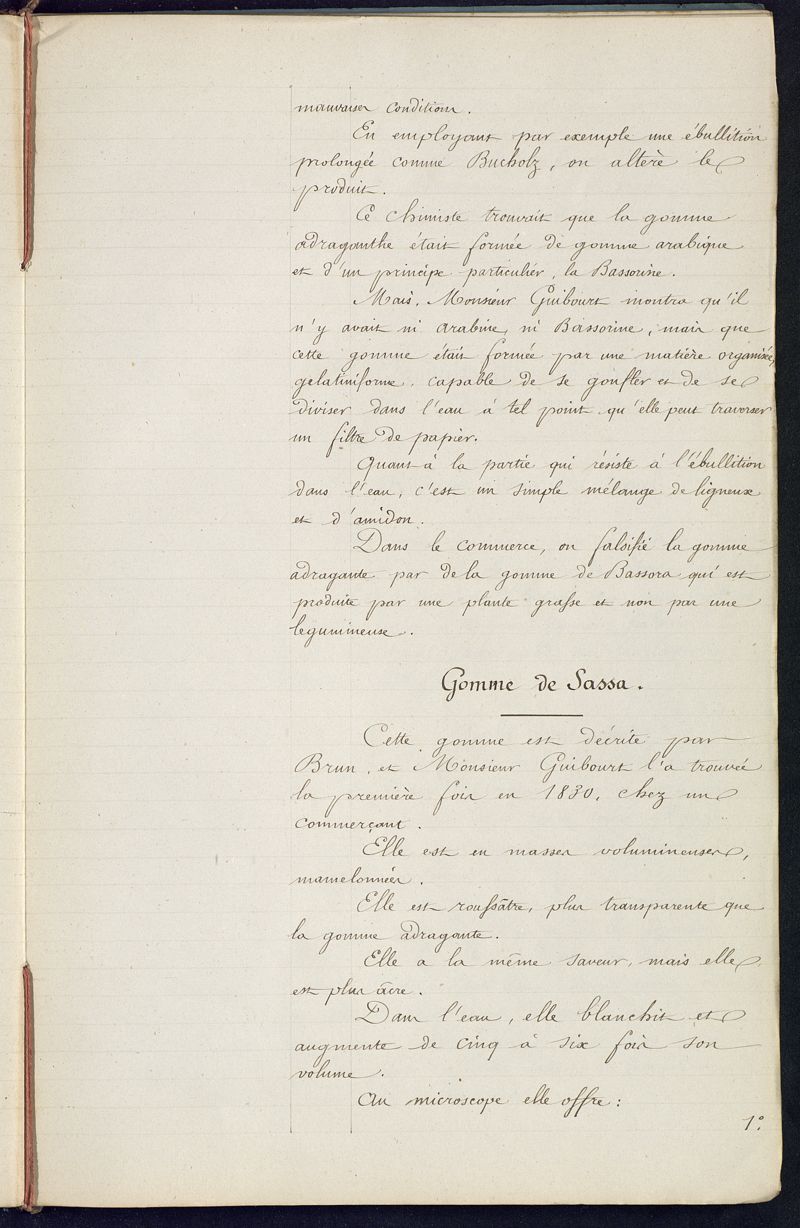 mauvaises conditions.
En employant par exemple une ébullition
prolongée comme Bucholz, on altère le
produit.
Ce chimiste trouvait que la gomme
adraganthe était formée de gomme arabique
et d'un principe particulier, la Bassorine.
Mais, Monsieur Guibourt montra qu'il
n'y avait ni arabine, ni Bassorine, mais que
cette gomme était formée par une matière organisée,
gelatiniforme, capable de se gonfler et de se
diviser dans l'eau à tel point qu'elle peut traverser
un filtre de papier.
Quant à la partie qui résiste à l'ébullition
dans l'eau, c'est un simple mélange de ligneux
et d'amidon.
Dans le commerce, on falsifie la gomme
adragante par de la gomme de Bassora qui est
produite par une plante grasse et non par une
legumineuse.
Gomme de Sassa.
Cette gomme est décrite par
Brun, et Monsieur Guibourt l'a trouvée
la première fois en 1830, chez un
commerçant.
Elle est en masses volumineuses,
mamelonnées.
Elle est roussâtre, plus transparente que
la gomme adragante.
Elle a la même saveur, mais elle
est plus âcre.
Dans l'eau, elle blanchit et
augmente de cinq à six fois son
volume.
Au microscope elle offre :
1°